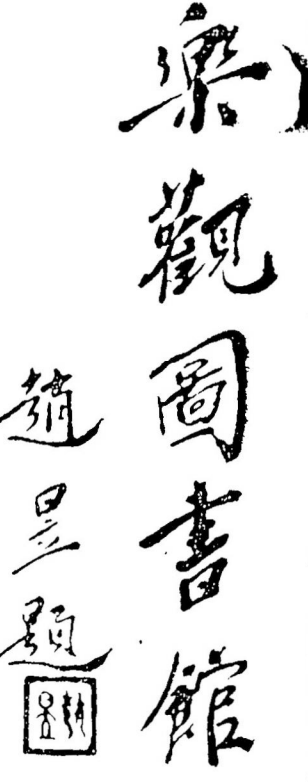 樂觀圖書館
趙昱題